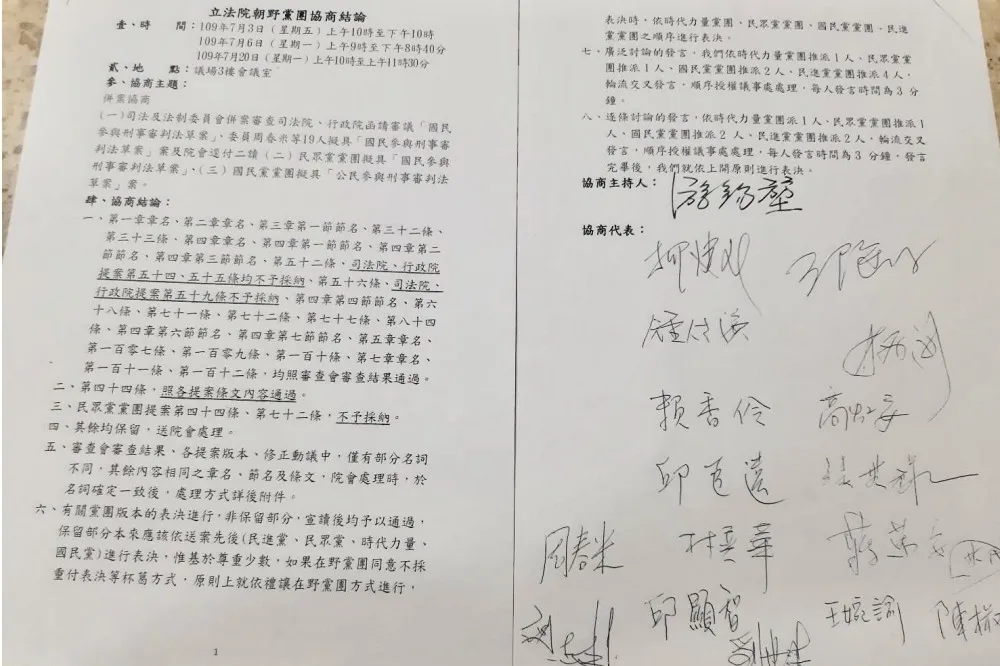 立法院朝野黨團協商結論
壹、時　　間：109年7月3日（星期五）上午10時至下午10時
109年7月6日（星期一）上午9時至下午8時40分
109年7月20日（星期一）上午10時至上午11時30分
貳、地　　點：議場3樓會議室
參、協商主題：
併案協商
(一)司法及法制委員會併案審查司法院、行政院函請審議「國民
參與刑事審判法草案」、委員周春米等19人擬具「國民參與刑事審
判法草案」案及院會逕付二讀（二）民眾黨黨團擬具「國民參與
刑事審判法草案」、(三）國民黨黨團擬具「公民參與刑事審判法
草案」案。
肆、協商結論：
一、第一章章名、第二章章名、第三章第一節節名、第三十二條、
第三十三條、第四章章名、第四章第一節節名、第四章第二
節節名、第四章第三節節名、第五十二條，司法院、行政院
提案第五十四、五十五條均不予採納、第五十六條、司法院、
行政院提案第五十九條不予採納、第四章第四節節名、第六
十八條、第七十一條、第七十二條、第七十七條、第八十四
條、第四章第六節節名、第四章第七節節名、第五章章名、
第一百零七條、第一百零九條、第一百十條、第七章章名、
第一百十一條、第一百十二條，均照審查會審查結果通過。
二、第四十四條，照各提案條文內容通過。
三、民眾黨黨團提案第四十四條、第七十二條，不予採納。
四、其餘均保留，送院會處理。
五、審查會審查結果、各提案版本、修正動議中，僅有部分名詞
不同，其餘內容相同之章名、節名及條文，院會處理時，於
名詞確定一致後，處理方式詳後附件。
六、有關黨團版本的表決進行，非保留部分，宣讀後均予以通過，
保留部分本來應該依送案先後(民進黨、民眾黨、時代力量、
國民黨)進行表決，惟基於尊重少數，如果在野黨團同意不採
重付表決等杯葛方式，原則上就依禮讓在野黨團方式進行，
1
表決時，依時代力量黨團、民眾黨黨團、國民黨黨團、民進
黨黨團之順序進行表決。
七、廣泛討論的發言，我們依時代力量黨團推派1人、民眾黨黨
團推派1人、國民黨黨團推派2人、民進黨黨團推派4人，
輪流交叉發言，順序授權議事處處理，每人發言時間為3分
鐘。
八、逐條討論的發言，依時代力量黨團1人、民眾黨黨團推派1
人、國民黨黨團推派2人、民進黨黨團推派2人，輪流交叉
發言，順序授權議事處處理，每人發言時間為3分鐘，發言
完畢後，我們就依上開原則進行表決。
協商主持人：
游錫堃
協商代表：
柯建銘
鍾佳濱
賴香伶 高虹安
邱臣遠
周春米 林奕華 蔣萬安
邱顯智 王婉諭 陳椒